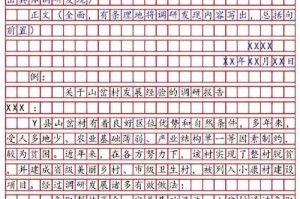 正文（全面，有条理地将调研发现内容写出，总括句
前置）
XXXX
XX年XX月XX日
例：
关于山岔村发展经验的调研报告
XXX：
Y县山岔村有着良好区位优势和自然条件，多年来，
受人多地少、农业基础薄弱、产业结构单一等因素制约，
较为贫困。近年来，在各方努力下，该村实现了整村脱贫
，并建成省级美丽乡村，市级卫生村，被列入小康村建设
项目。经过调研发展诸多有效做法：